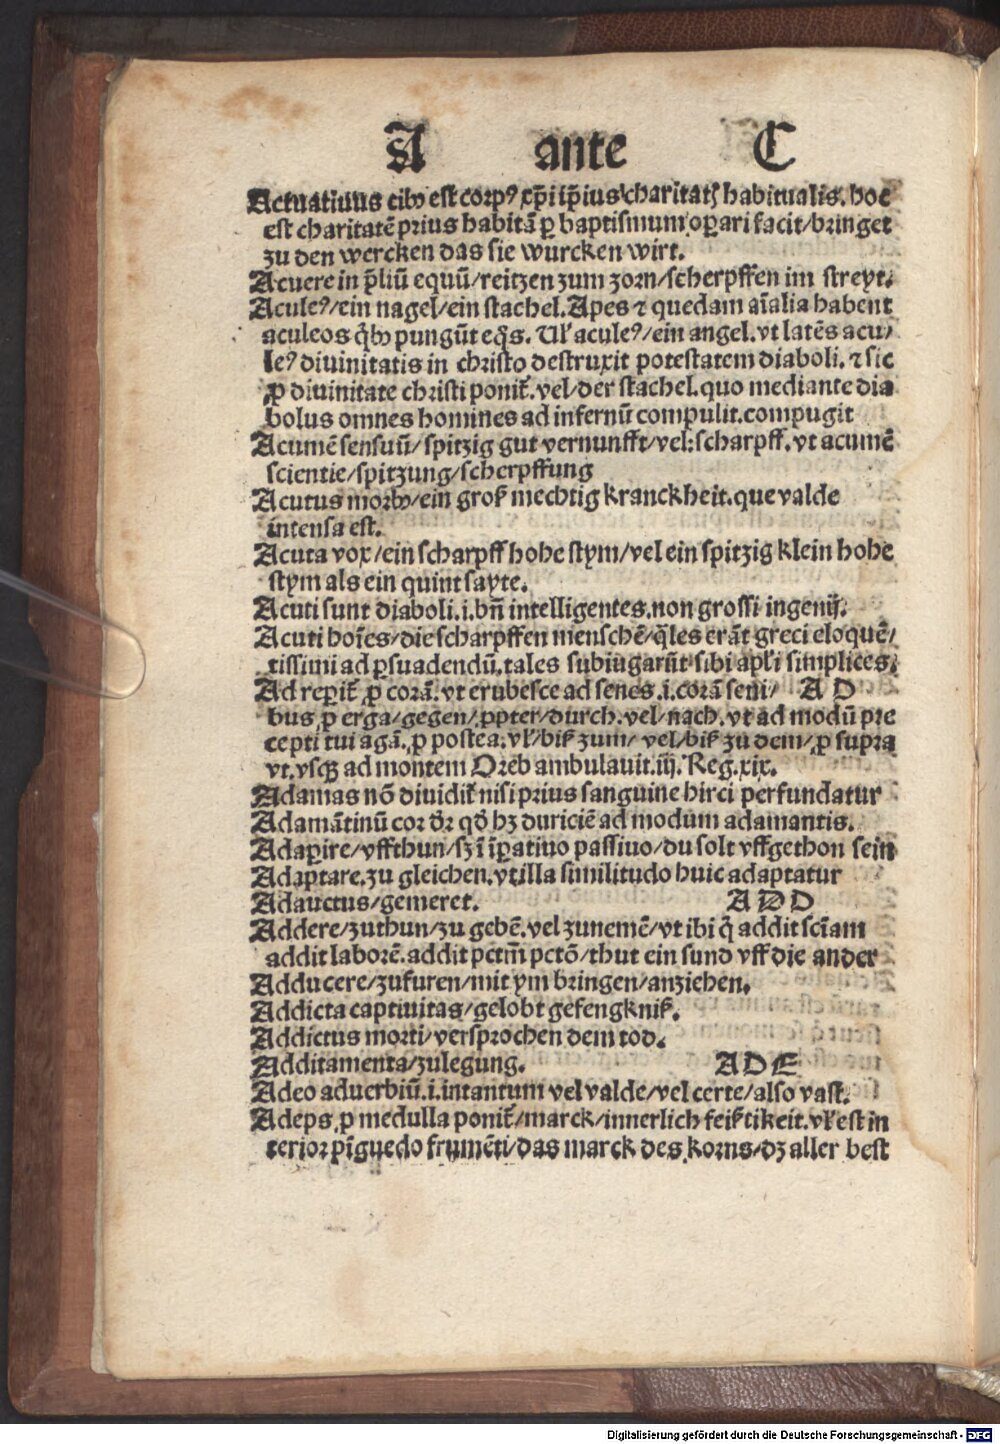 A ante C
Actuatiuus cibꝰ est corpꝰ xp̄i ip̄ius charitatꝭ habitualis. hoc
est charitatē prius habitā ꝑ baptismum oꝑari facit/bringet
zu den wercken das sie wurcken wirt.
Acuere in p̄liū equū/reitzen zum zorn/scherpffen im streyt.
Aculeꝰ/ein nagel/ein stachel. Apes ⁊ quedam aīalia habent
aculeos qͥbꝰ pungūt eqͦs. Ul' aculeꝰ/ein angel. vt latēs acu/
leꝰ diuinitatis in christo destruxit potestatem diaboli. ⁊ sic
ꝓ diuinitate christi ponit̄. vel/der stachel. quo mediante dia
bolus omnes homines ad infernū compulit. compugit
Acumē sensuū/spitzig gut vernunfft/vel: scharpff. vt acumē
scientie/spitzung/scherpffung
Acutus morbꝰ/ein groß mechtig kranckheit. que valde
intensa est.
Acuta vox/ein scharpff hohe stym/vel ein spitzig klein hohe
stym als ein quint sayte.
Acuti sunt diaboli. i. bn̄ intelligentes. non grossi ingenij.
Acuti hoīes/die scharpffen menschē/q̄les erāt greci eloquē/
tissimi ad ꝑsuadendū. tales subiugarūt sibi apl'i simplices.
Ad reꝑit̄ ꝓ corā. vt erubesce ad senes. i. corā seni/ A D
bus ꝓ erga/gegen/ꝓpter/durch. vel/nach. vt ad modū pre
cepti tui agā. ꝓ postea. vl'/biß zum/ vel/biß zu dem/ꝓ supra
vt. vsqꝫ ad montem Oreb ambulauit. iij. Reg. xix.
Adamas nō diuidit̄ nisi prius sanguine hirci perfundatur
Adamātinū cor dr̄ qd̄ hꝫ duriciē ad modum adamantis.
Adaꝑire/vffthun/sꝫ ī īꝑatiuo passiuo/du solt vffgethon sein
Adaptare. zu gleichen. vt illa similitudo huic adaptatur
Adauctus/gemeret. A D D
Addere/zuthun/zu gebē. vel zunemē/vt ibi q̄ addit scīam
addit laborē. addit pctm̄ pctō/thut ein sund vff die ander
Adducere/zufuren/mit ym bringen/anziehen.
Addicta captiuitas/gelobt gefengkniß.
Addictus morti/versprochen dem tod.
Additamenta/zulegung. A D E
Adeo aduerbiū. i. intantum vel valde/vel certe/also vast.
Adeps ꝓ medulla ponit̄/marck/innerlich feißtikeit. vl' est in
terior pīguedo frumēti/das marck des korns/dꝫ aller best
Digitalisierung gefördert durch die Deutsche Forschungsgemeinschaft - DFG